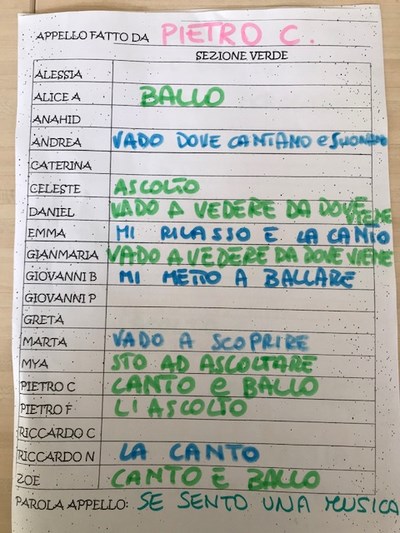 APPELLO FATTO DA PIETRO C.
SEZIONE VERDE
ALESSIA
ALICE A BALLO
ANAHID
ANDREA VADO DOVE CANTANO e SUONANO
CATERINA
CELESTE ASCOLTO
DANIEL VADO A VEDERE DA DOVE VIENE
EMMA MI RILASSO E LA CANTO
GIANMARIA VADO A VEDERE DA DOVE VIENE
GIOVANNI B MI METTO A BALLARE
GIOVANNI P
GRETA
MARTA VADO A SCOPRIRE
MYA STO AD ASCOLTARE
PIETRO C CANTO e BALLO
PIETRO F LI ASCOLTO
RICCARDO C
RICCARDO N LA CANTO
ZOE CANTO E BALLO
PAROLA APPELLO: SE SENTO UNA MUSICA